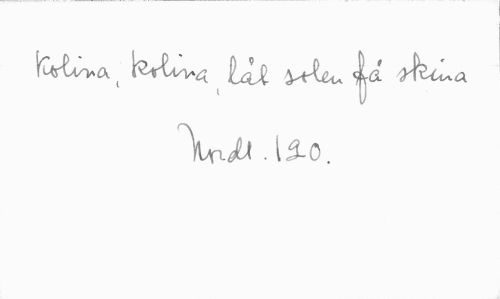 Kolina, kolina, låt solen få skina
Nordl. 120.